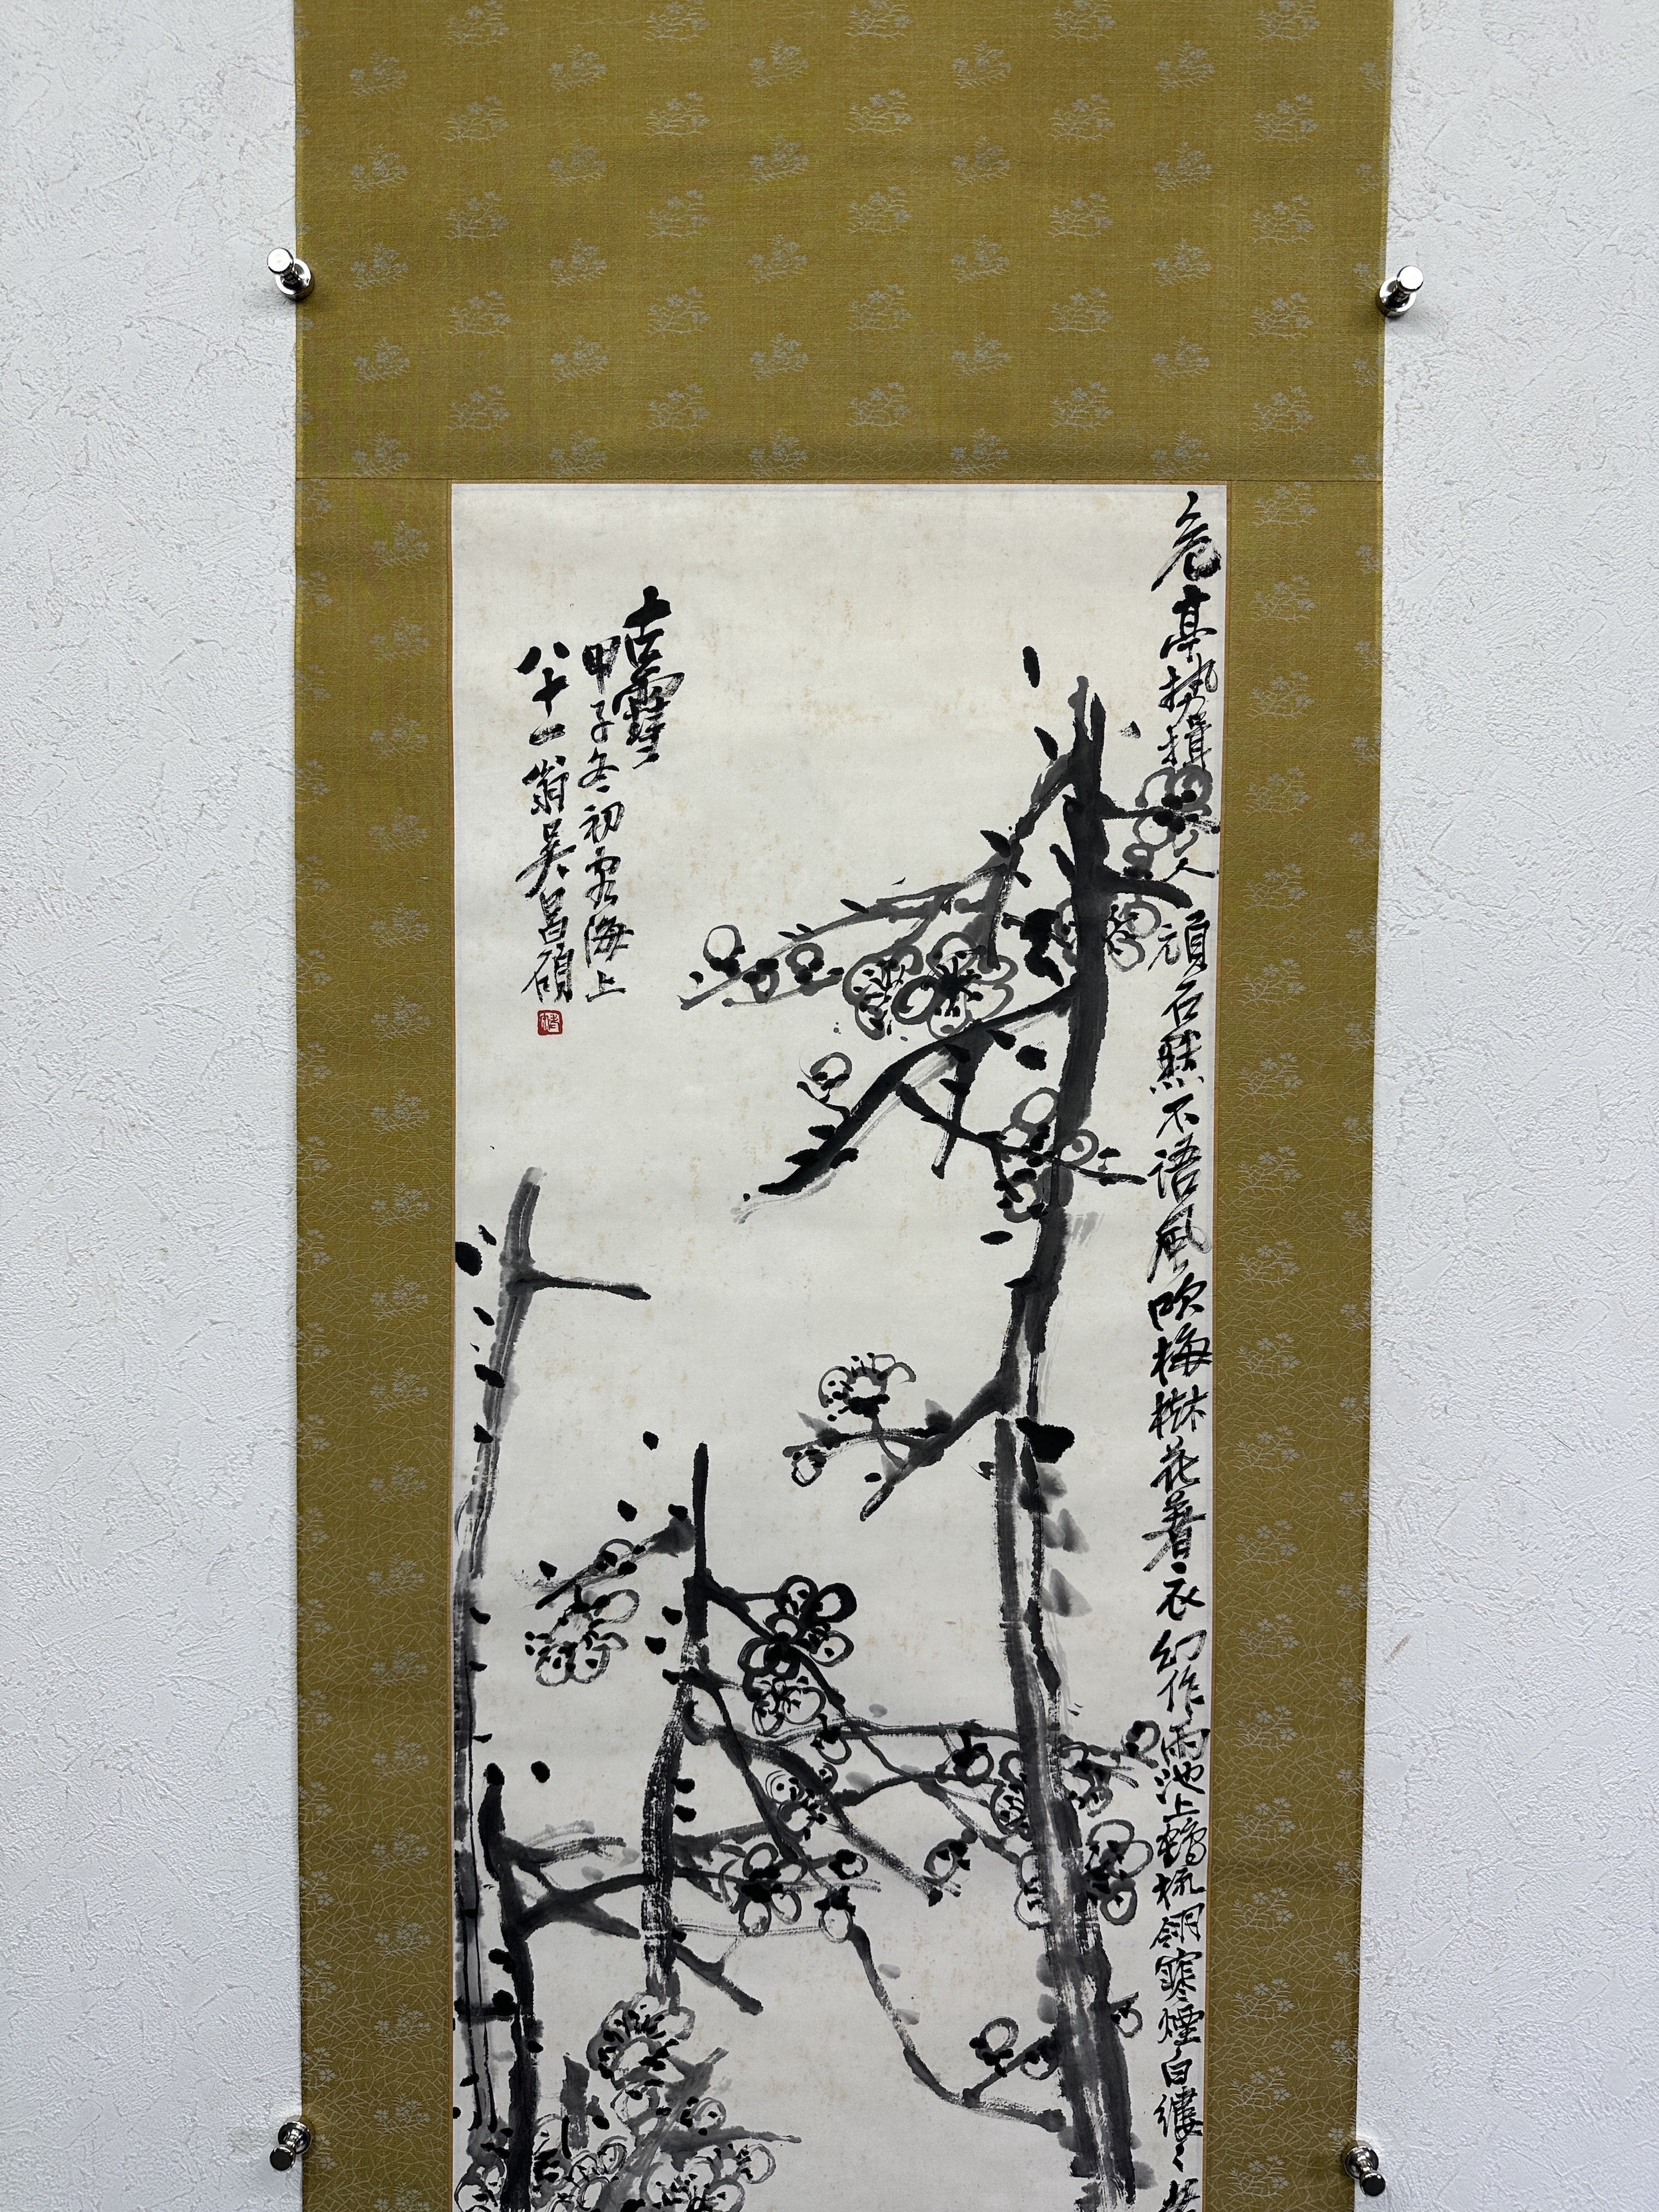 危亭勢揖人頑石默不語風吹梅樹花着衣幻作雨池上鶴梳翎寒煙白縷〻
古雪
甲子冬初客海上
八十一翁吳昌碩